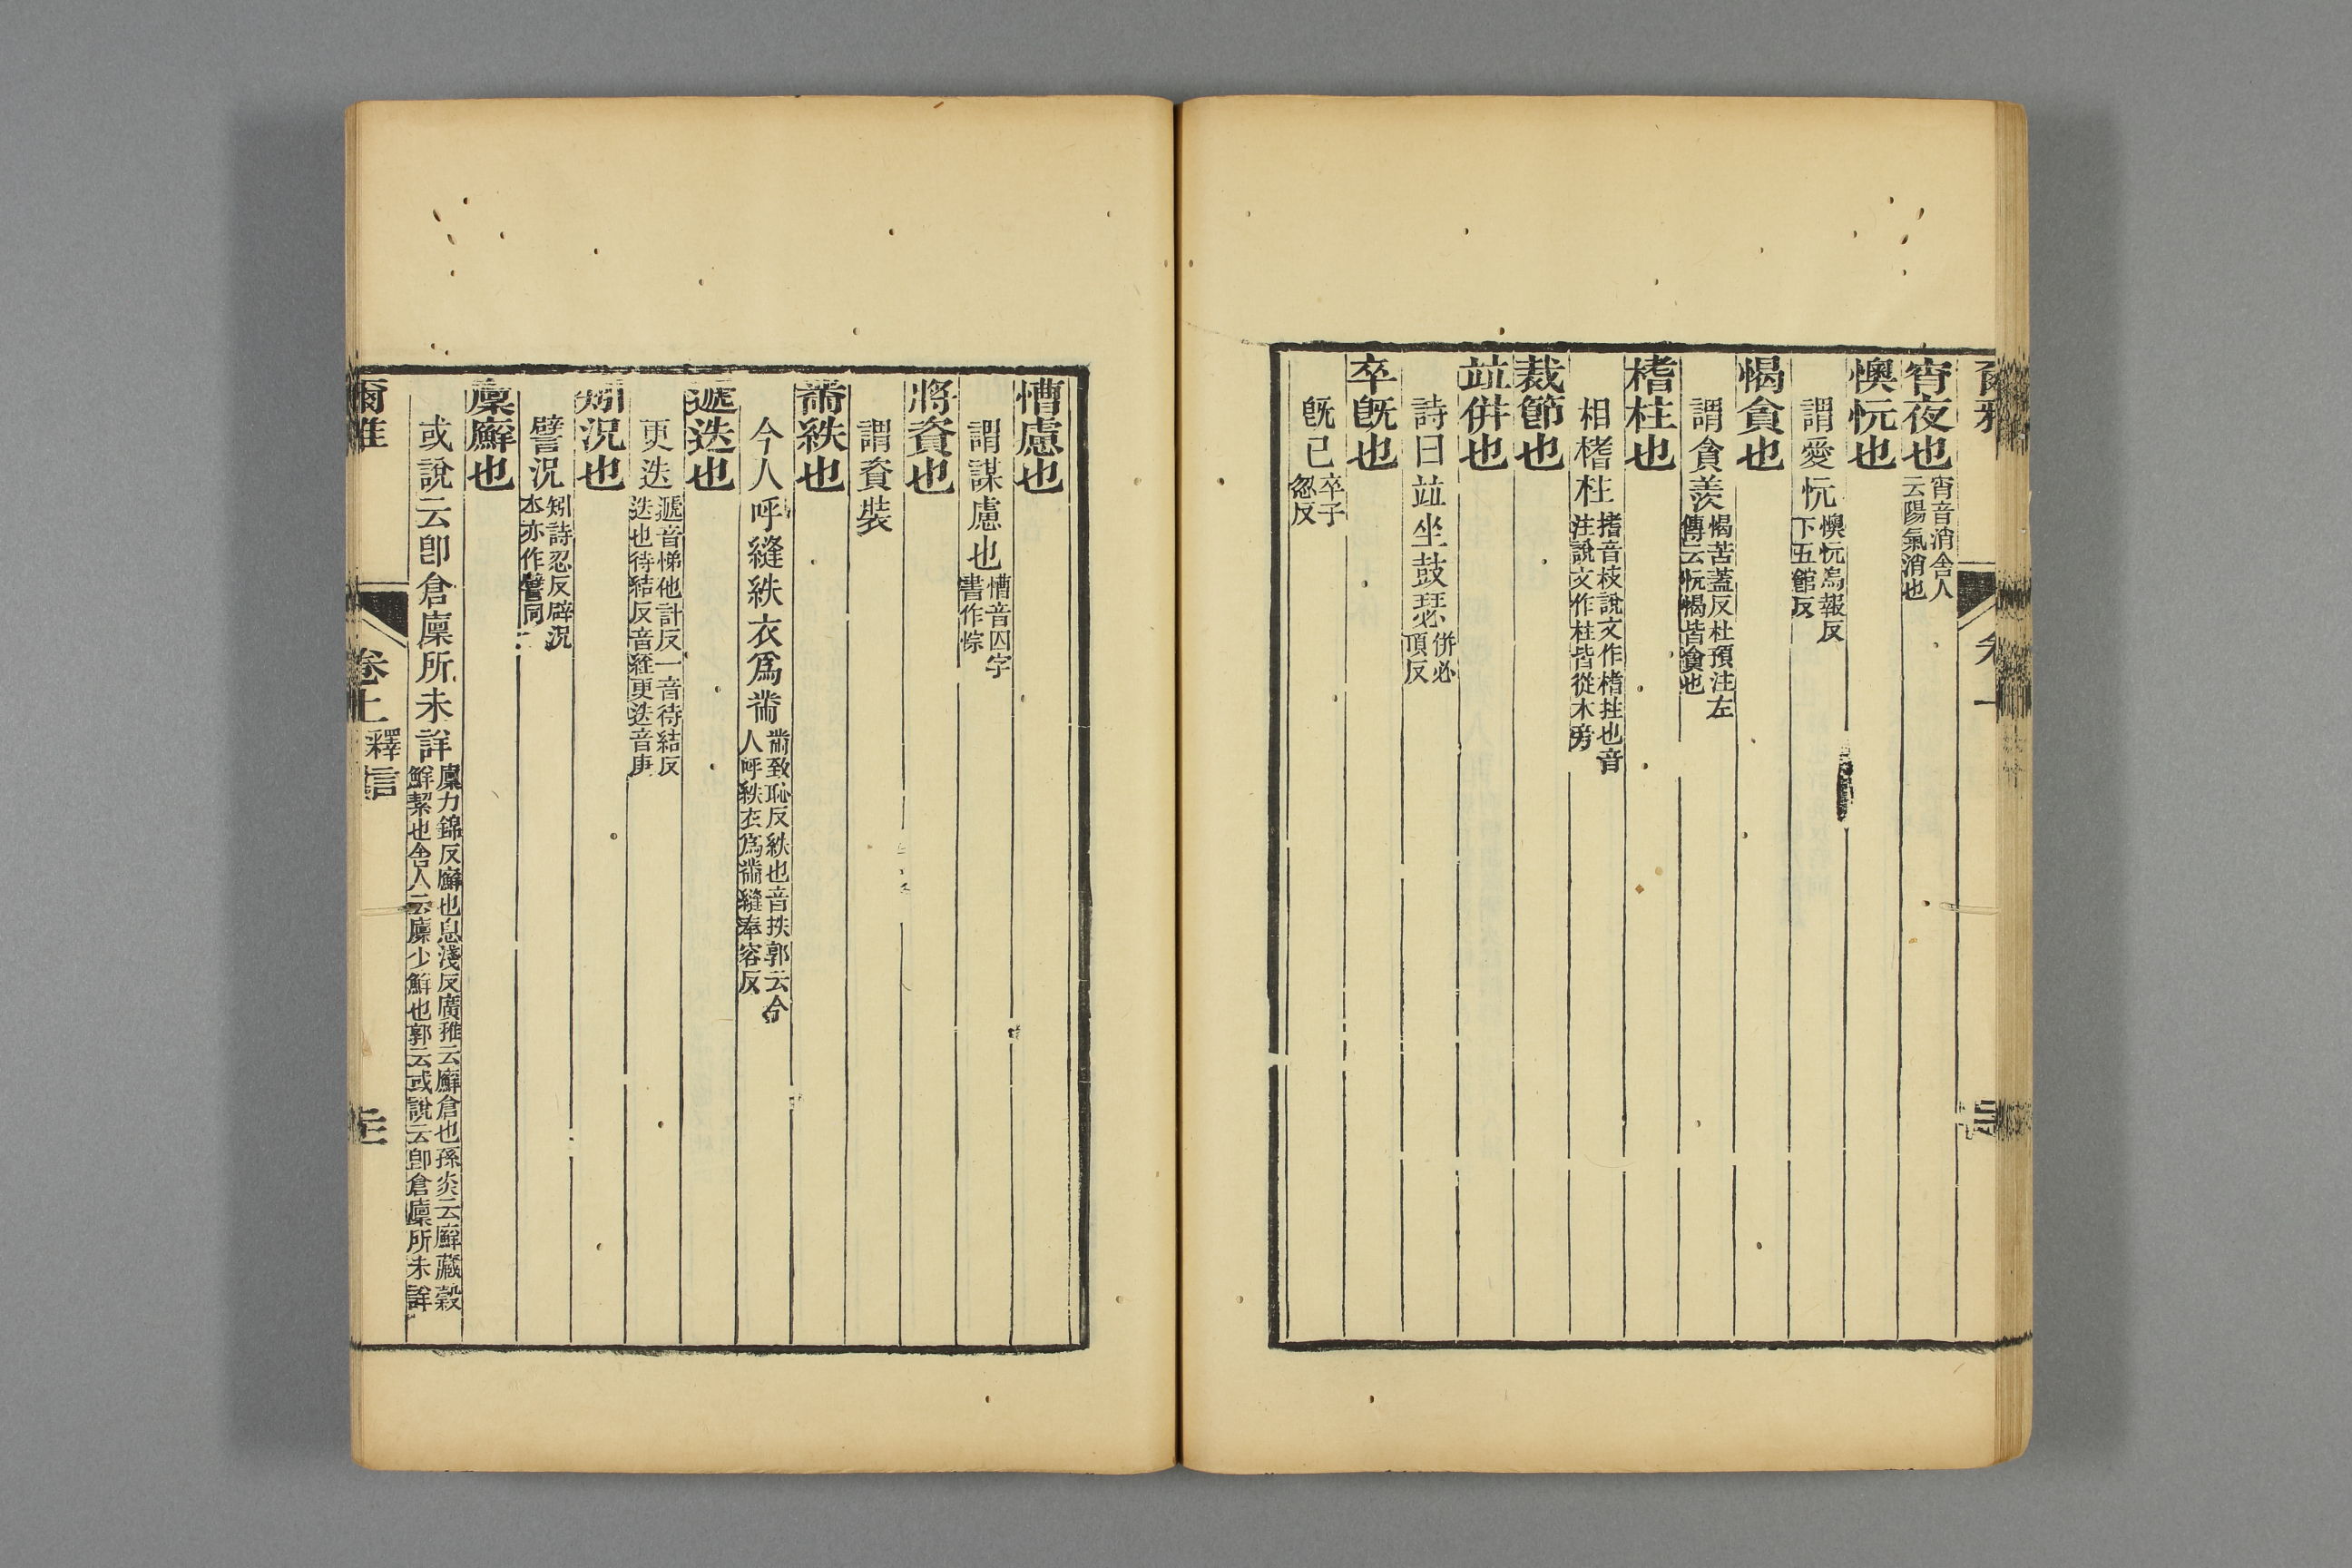 宵夜也宵音消舍人云陽氣消也
懊忨也
謂愛忨懊忨烏報反下五館反
愒貪也
謂貪羨愒苦蓋反杜預注左傳云忨愒皆貪也
榰柱也
相榰柱榰音枝說文作榰拄也音注說文作柱皆從木旁
裁節也
竝併也
詩曰竝坐鼓瑟併必頂反
卒旣也
旣已卒子忽反
慒慮也
謂謀慮也慒音囚字書作悰
將資也
謂資裝
黹紩也
今人呼縫紩衣爲黹黹致恥反紩也音抶郭云今人呼紩衣爲黹縫奉容反
遞迭也
更迭遞音悌他計反一音待結反迭也待結反音絰更迭音庚
矧況也
譬況矧詩忍反辟況本亦作譬同
廩廯也
或說云卽倉廩所未詳廩力錦反廯也息淺反廣雅云廯倉也孫炎云廯藏穀鮮絜也舍人云廩少鮮也郭云或說云卽倉廩所未詳
爾雅 卷上 釋言